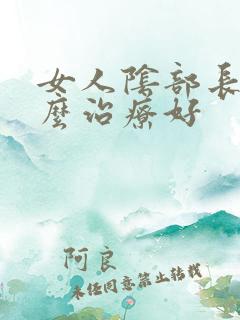 女人陰部長
麼治療好
阿良
未经同意禁止转载